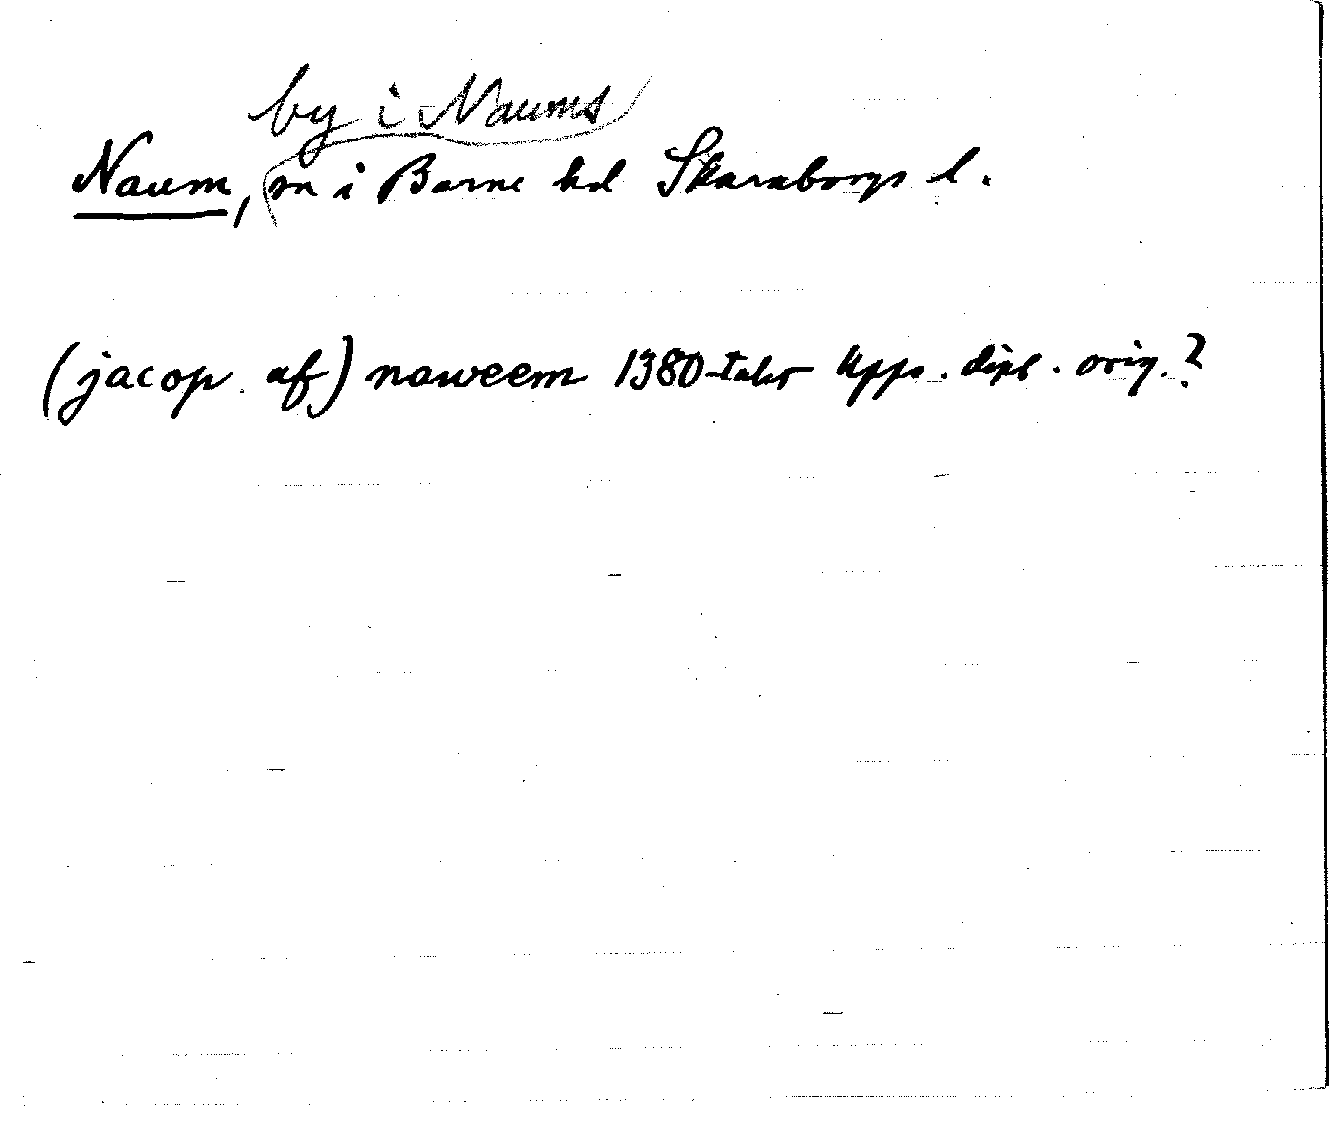 by i Naums
Naum, sn i Barne hd Skaraborgs l.
(jacop af) naweem 1380-talet Upps. dipl. orig.?